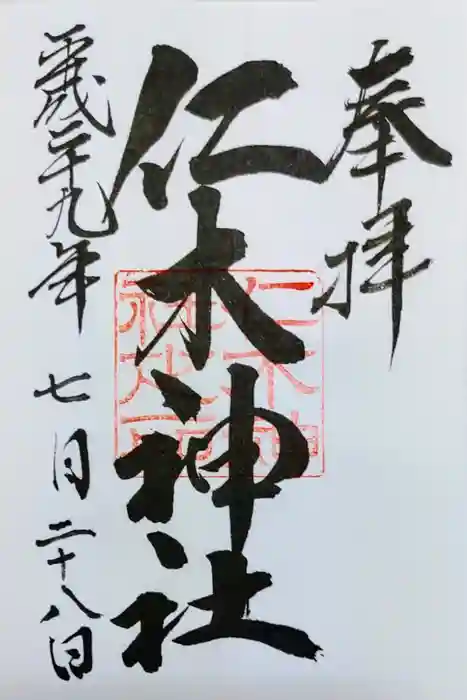 奉拝
仁木神社
仁木神
社之印
平成二十九年
七月二十八日